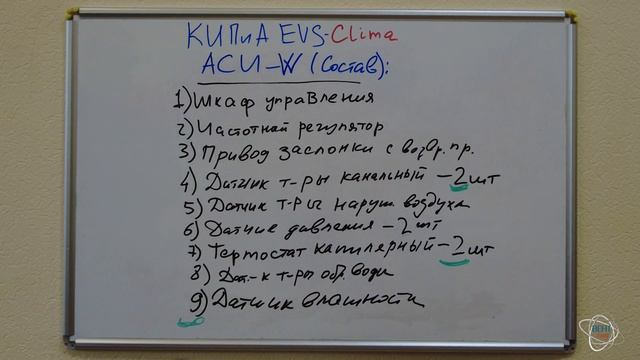 КИПиА EVS-Clima
АСИ-W (Состав):
1) Шкаф управления
2) Частотный регулятор
3) Привод заслонки с возвр. пр.
4) Датчик т-ры канальный - 2 шт
5) Датчик т-ры наруж воздуха
6) Датчик давления - 2 шт
7) Термостат капилярный - 2 шт
8) Дат-к т-ры обр. воды
9) Датчик влажности